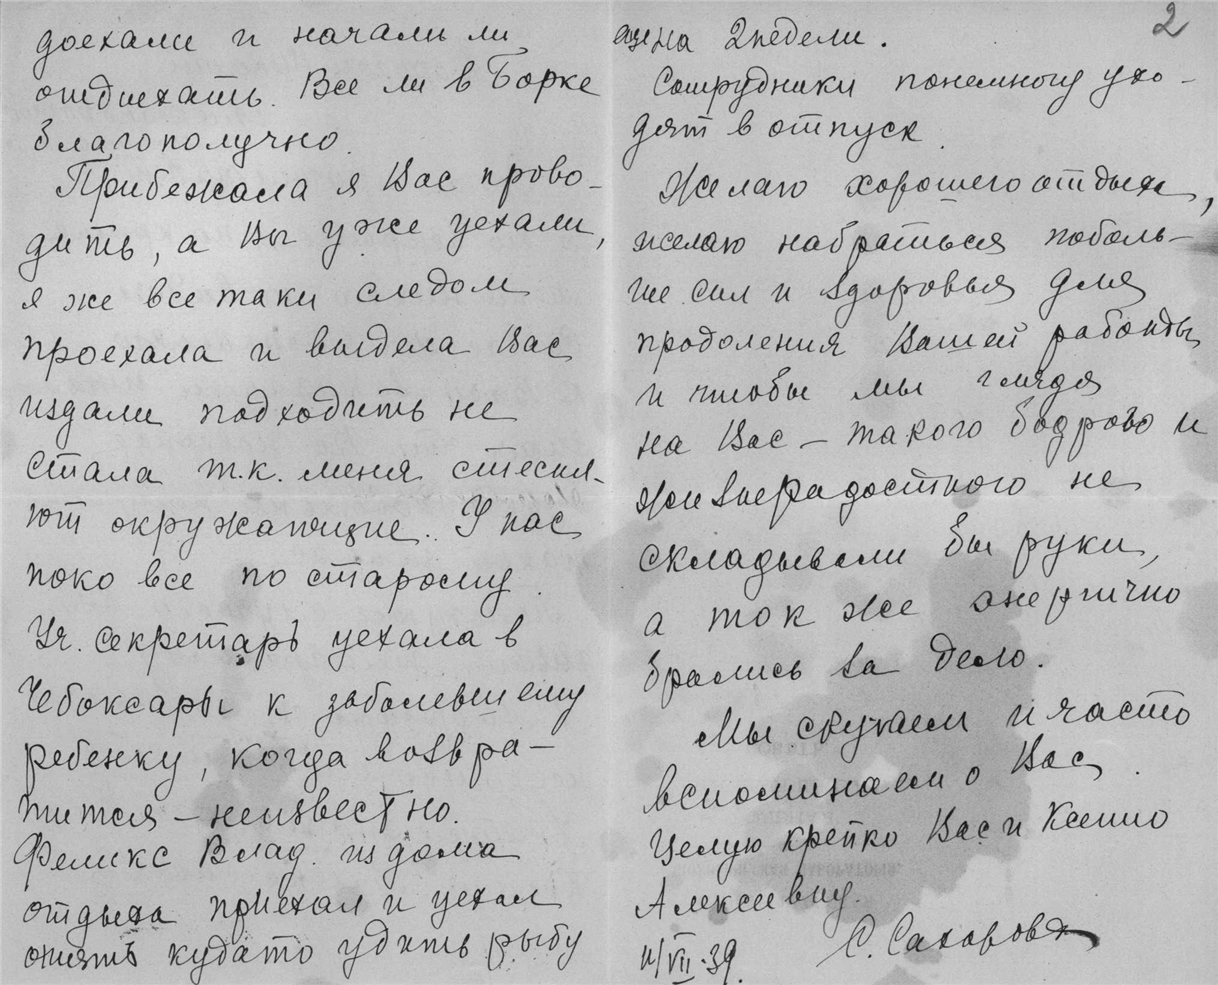 доехали и начали ли
отдыхать. Все ли в Борке
благополучно.
Прибежала я Вас прово-
дить, а Вы уже уехали,
я же все таки следом
проехала и видела Вас
издали подходить не
стала т.к. меня стесня-
ют окружающие. У нас
пока все по старому.
Уч. секретарь уехала в
Чебоксары к заболевшему
ребенку, когда возвра-
тится – неизвестно.
Феликс Влад. из дома
отдыха приехал и уехал
опять кудато удить рыбу
2
еще на 2 недели.
Сотрудники понемногу ухо-
дят в отпуск.
Желаю хорошего отдыха,
желаю набраться поболь-
ше сил и здоровья для
продоления Вашей работы
и чтобы мы глядя
на Вас – такого бодрого и
жизнерадостного не
складывали бы руки,
а так же энергично
брались за дело.
Мы скучаем и часто
вспоминаем о Вас.
Целую крепко Вас и Ксению
Алексеевну.
С. Сахарова
11/VII-39.